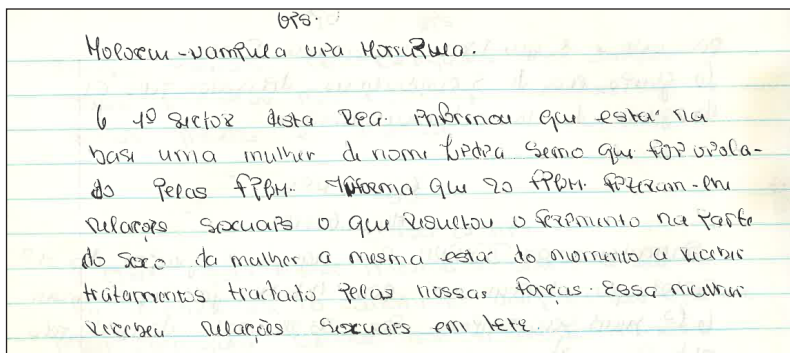 GPS.
Molocue-Nampula via Morrupula.
O 1º sector desta REG. informou que está na
base uma mulher de nome Lídia Semo que foi viola-
do pelas FPLM. Informa que 20 FPLM. fizeram-em
relações sexuais o que resultou o ferimento na parte
do sexo da mulher a mesma está do momento a receber
tratamentos tractato pelas nossas forças. Essa mulher
recebeu relações sexuais em Tete.